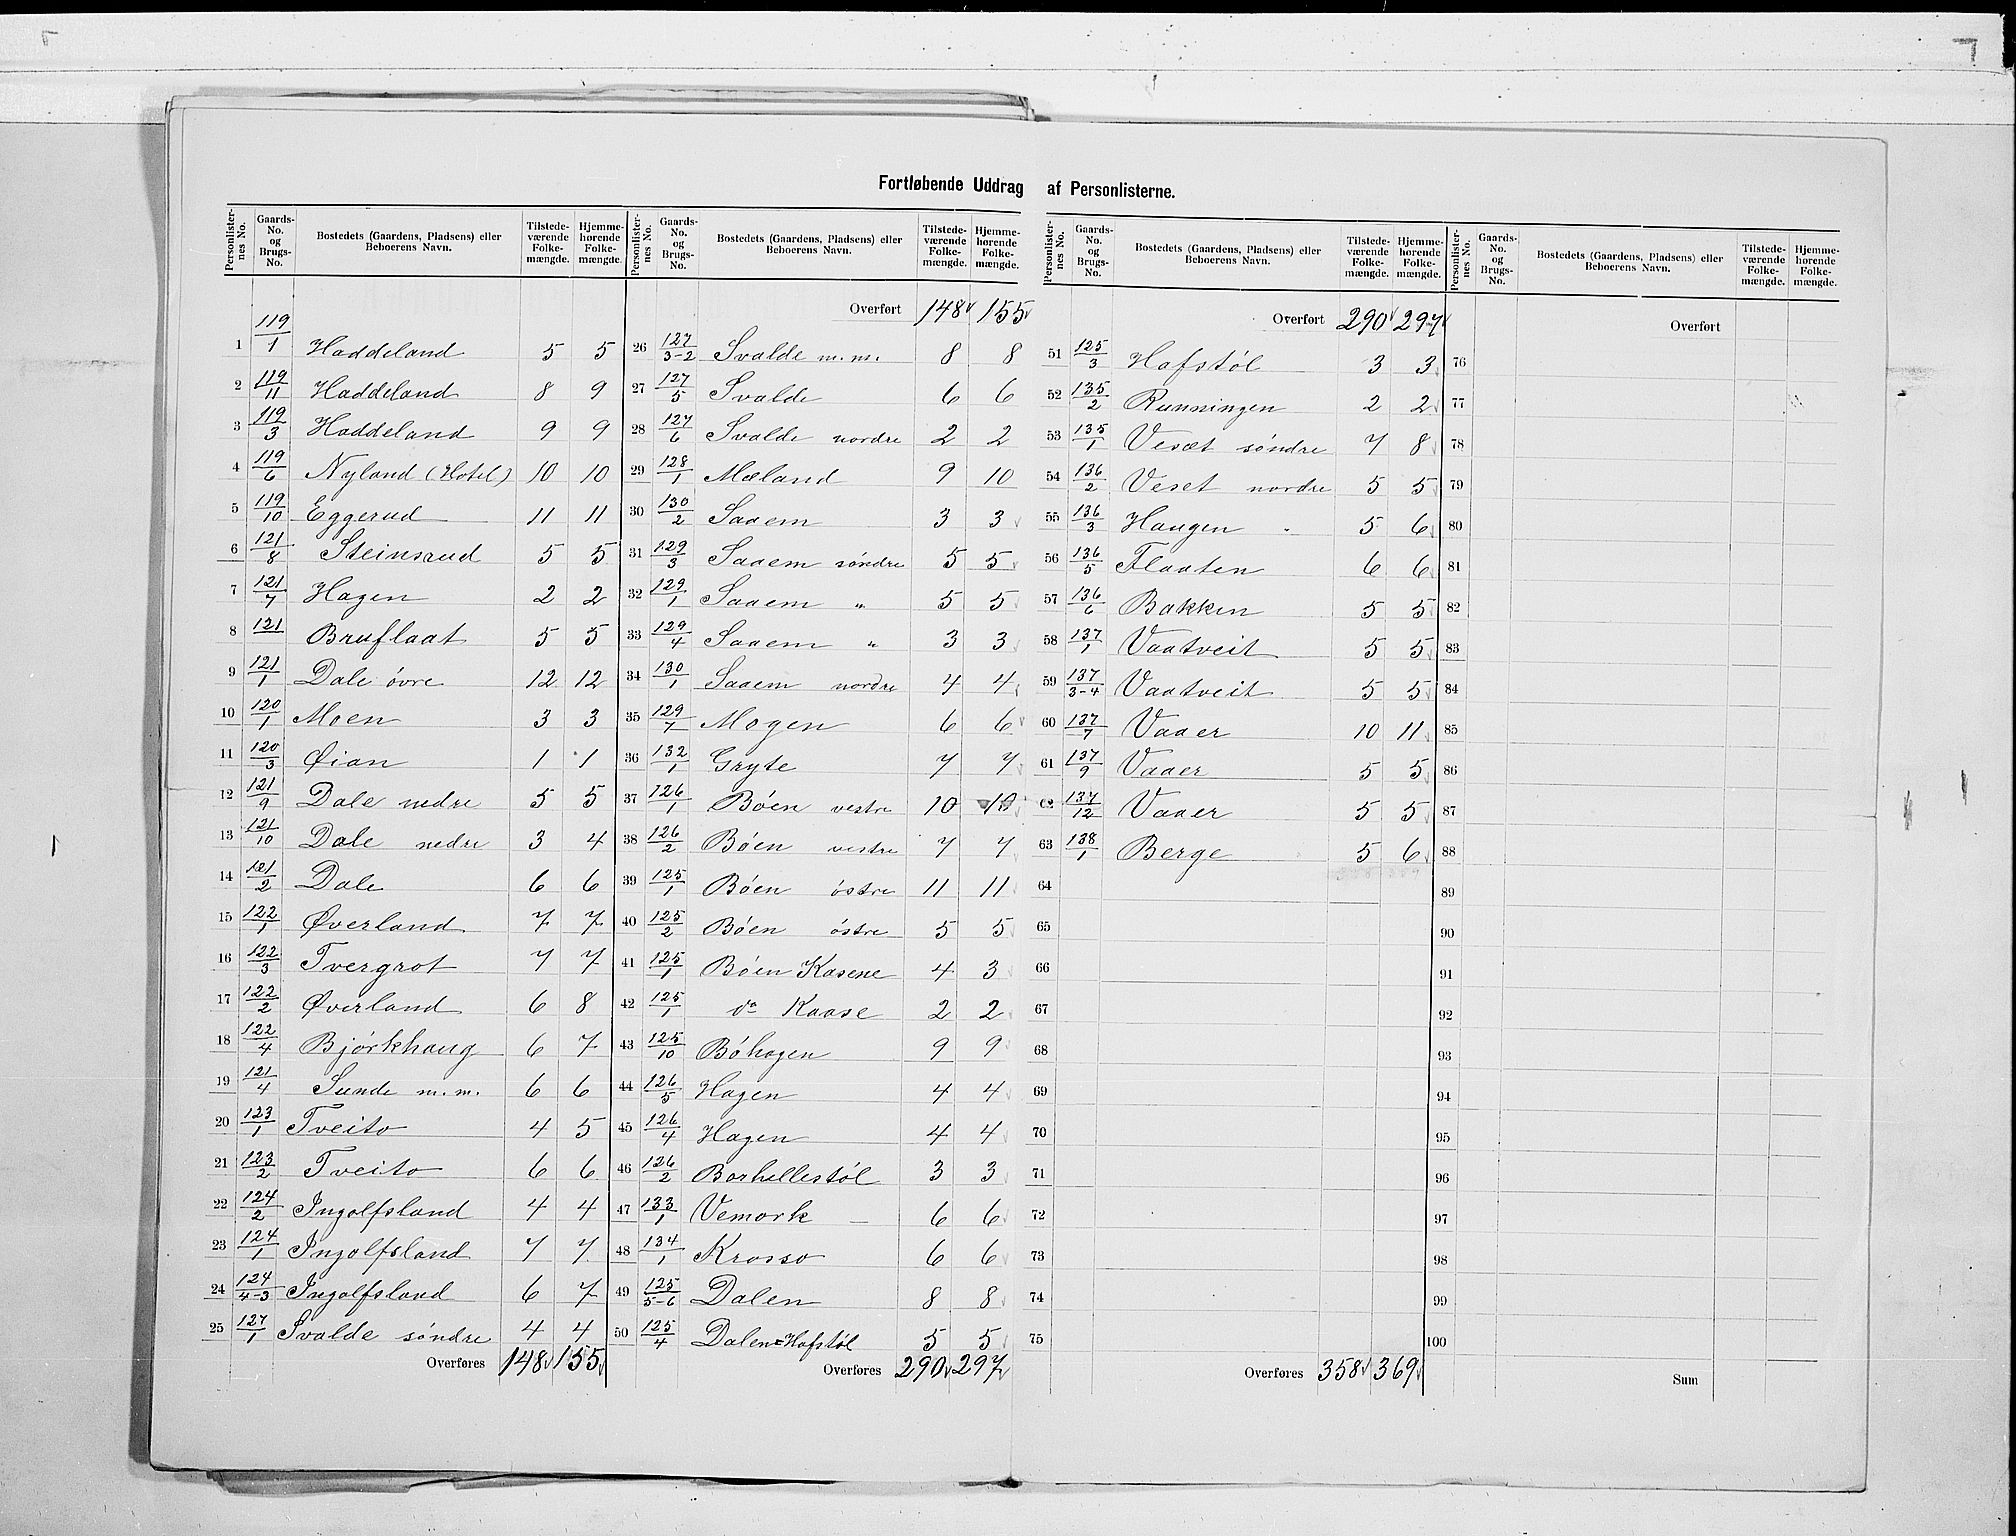 Fortløbende Uddrag af Personlisterne.
Personlisternes No. Gaards-No. og Brugs-No. Bostedets (Gaardens, Pladsens) eller Beboerens Navn. Tilstedeværende Folkemængde. Hjemmehørende Folkemængde.
1 119/1 Haddeland 5 5
2 119/11 Haddeland 8 9
3 119/3 Haddeland 9 9
4 119/6 Nyland (Hotel) 10 10
5 119/10 Eggerud 11 11
6 121/8 Steinsrud 5 5
7 121/7 Hagen 2 2
8 121 Bruflaat 5 5
9 121/1 Dale øvre 12 12
10 120/1 Moen 3 3
11 120/3 Øian 1 1
12 121/9 Dale nedre 5 5
13 121/10 Dale nedre 3 4
14 121/2 Dale 6 6
15 122/1 Øverland 7 7
16 122/3 Tvergrot 7 7
17 122/2 Øverland 6 8
18 122/4 Bjørkhaug 6 7
19 121/4 Sunde m.m. 6 6
20 123/1 Tveito 4 5
21 123/2 Tveito 6 6
22 124/2 Ingolfsland 4 4
23 124/1 Ingolfsland 7 7
24 124/4-3 Ingolfsland 6 7
25 127/1 Svalde søndre 4 4
Overføres 148 155
Personlisternes No. Gaards-No. og Brugs-No. Bostedets (Gaardens, Pladsens) eller Beboerens Navn. Tilstedeværende Folkemængde. Hjemmehørende Folkemængde.
Overført 148 155
26 127/3-2 Svalde m.m. 8 8
27 127/5 Svalde 6 6
28 127/6 Svalde nordre 2 2
29 128/1 Mæland 9 10
30 130/2 Saaem 3 3
31 129/3 Saaem søndre 5 5
32 129/1 Saaem " 5 5
33 129/4 Saaem " 3 3
34 130/1 Saaem nordre 4 4
35 129/7 Mogen 6 6
36 132/1 Gryte 7 7
37 126/1 Bøen vestre 10 10
38 126/2 Bøen vestre 7 7
39 125/1 Bøen østre 11 11
40 125/2 Bøen østre 5 5
41 125/1 Bøen Kasene 4 3
42 125/1 do Kaase 2 2
43 125/10 Bøhagen 9 9
44 126/5 Hagen 4 4
45 126/4 Hagen 4 4
46 126/2 Borhellestøl 3 3
47 133/1 Vemork 6 6
48 134/1 Krosso 6 6
49 125/5-6 Dalen 8 8
50 125/4 Dalen=Hofstøl 5 5
Overføres 290 297
Personlisternes No. Gaards-No. og Brugs-No. Bostedets (Gaardens, Pladsens) eller Beboerens Navn. Tilstedeværende Folkemængde. Hjemmehørende Folkemængde.
Overført 290 297
51 125/3 Hofstøl 3 3
52 135/2 Runningen 2 2
53 135/1 Vesæt søndre 7 8
54 136/2 Veset nordre 5 5
55 136/3 Haugen " 5 6
56 136/5 Flaaten 6 6
57 136/6 Bakken 5 5
58 137/1 Vaatveit 5 5
59 137/3-4 Vaatveit 5 5
60 137/7 Vaaer 10 11
61 137/9 Vaaer 5 5
62 137/12 Vaaer 5 5
63 138/1 Berge 5 6
64
65
66
67
68
69
70
71
72
73
74
75
Overføres 358 369
Personlisternes No. Gaards-No. og Brugs-No. Bostedets (Gaardens, Pladsens) eller Beboerens Navn. Tilstedeværende Folkemængde. Hjemmehørende Folkemængde.
Overført
76
77
78
79
80
81
82
83
84
85
86
87
88
89
90
91
92
93
94
95
96
97
98
99
100
Sum